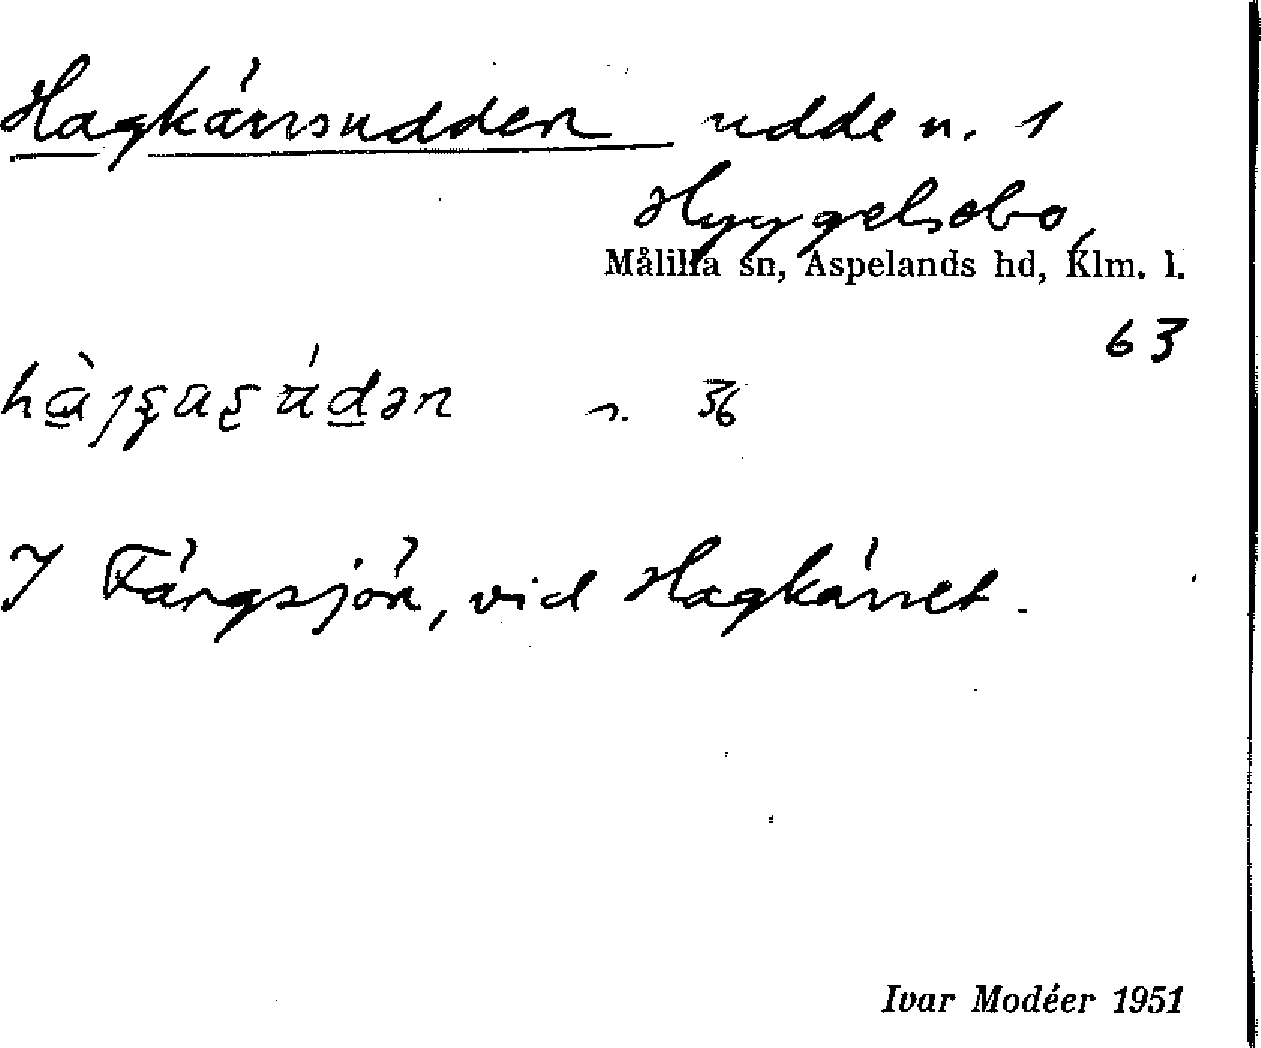 Hagkärrsudden udde n. 1
Hyggelsebo,
Målilla sn, Aspelands hd, Klm. l.
63
n. 36
I Färgsjön, vid Hagkärret.
Ivar Modéer 1951